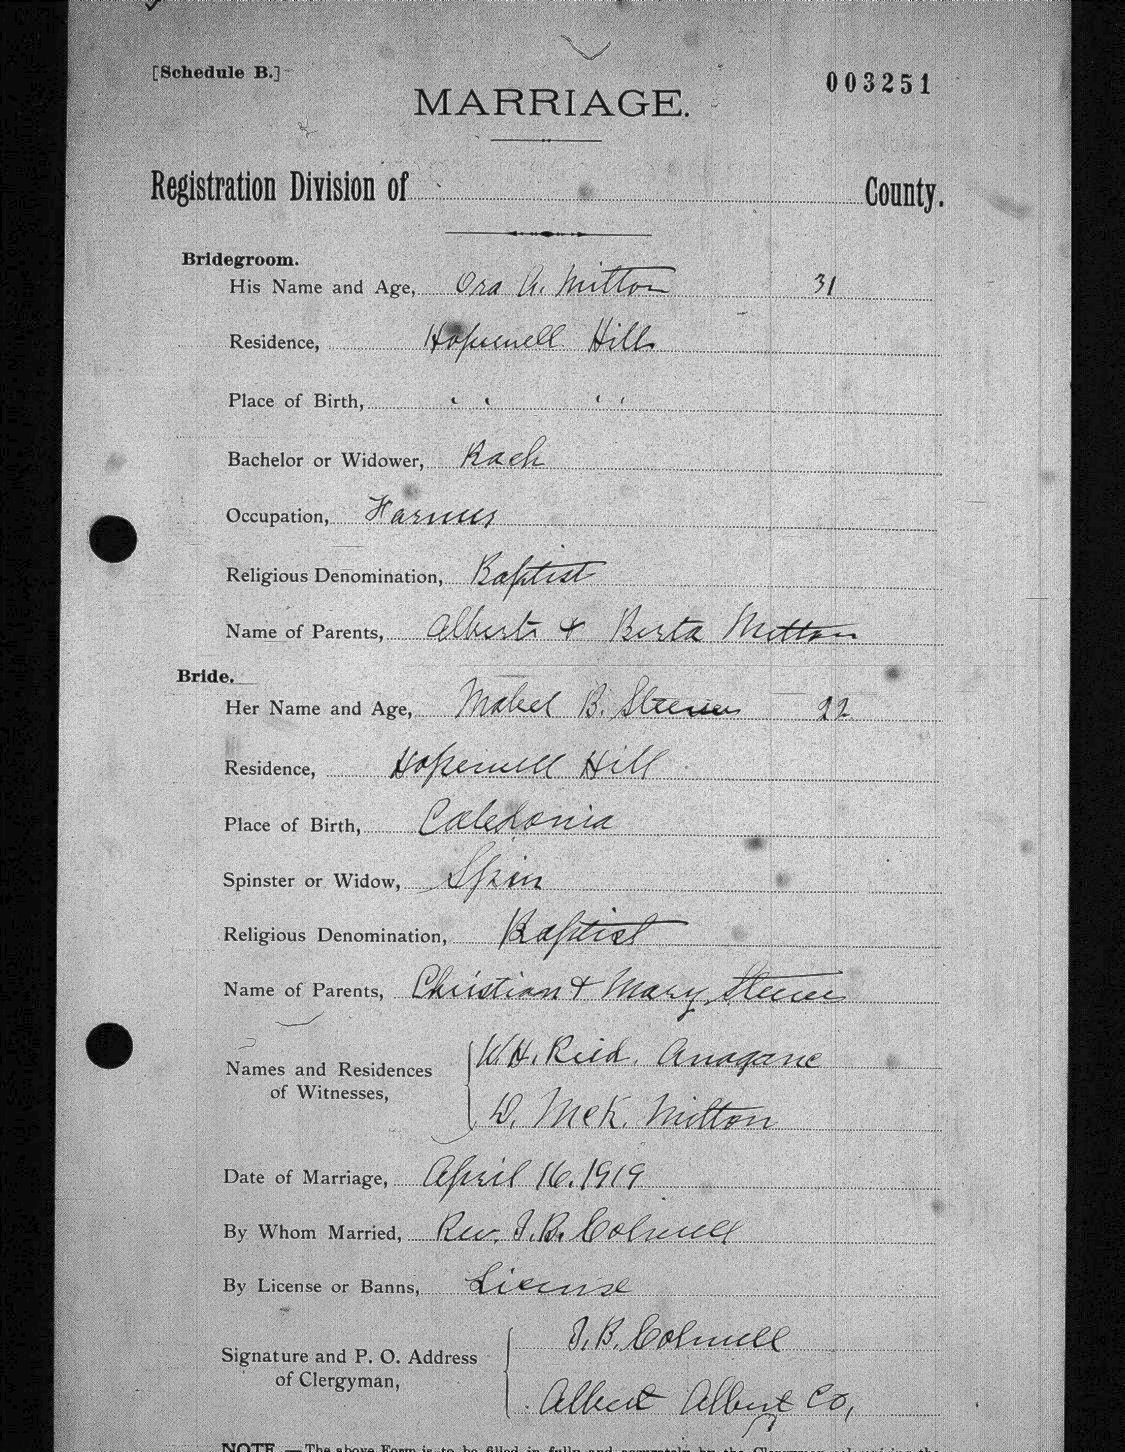 [Schedule B.]
003251
MARRIAGE.
Registration Division of County.
Bridegroom.
His Name and Age, Ora A. Mitton 31
Residence, Hopewell Hill
Place of Birth, " " " "
Bachelor or Widower, Bach
Occupation, Farmer
Religious Denomination, Baptist
Name of Parents, Albert & Berta Mitton
Bride.
Her Name and Age, Mabel B. Steeves 22
Residence, Hopewell Hill
Place of Birth, Caledonia
Spinster or Widow, Spin
Religious Denomination, Baptist
Name of Parents, Christian & Mary Steeves
Names and Residences W.H. Reid. Anagance
of Witnesses, D. McK. Mitton
Date of Marriage, April 16. 1919
By Whom Married, Rev. J.B. Colwell
By License or Banns, License
J.B. Colwell
Signature and P. O. Address
of Clergyman,
Albert Albert Co,
NOTE.—The above Form is to be filled in fully and accurately by the Clergyman